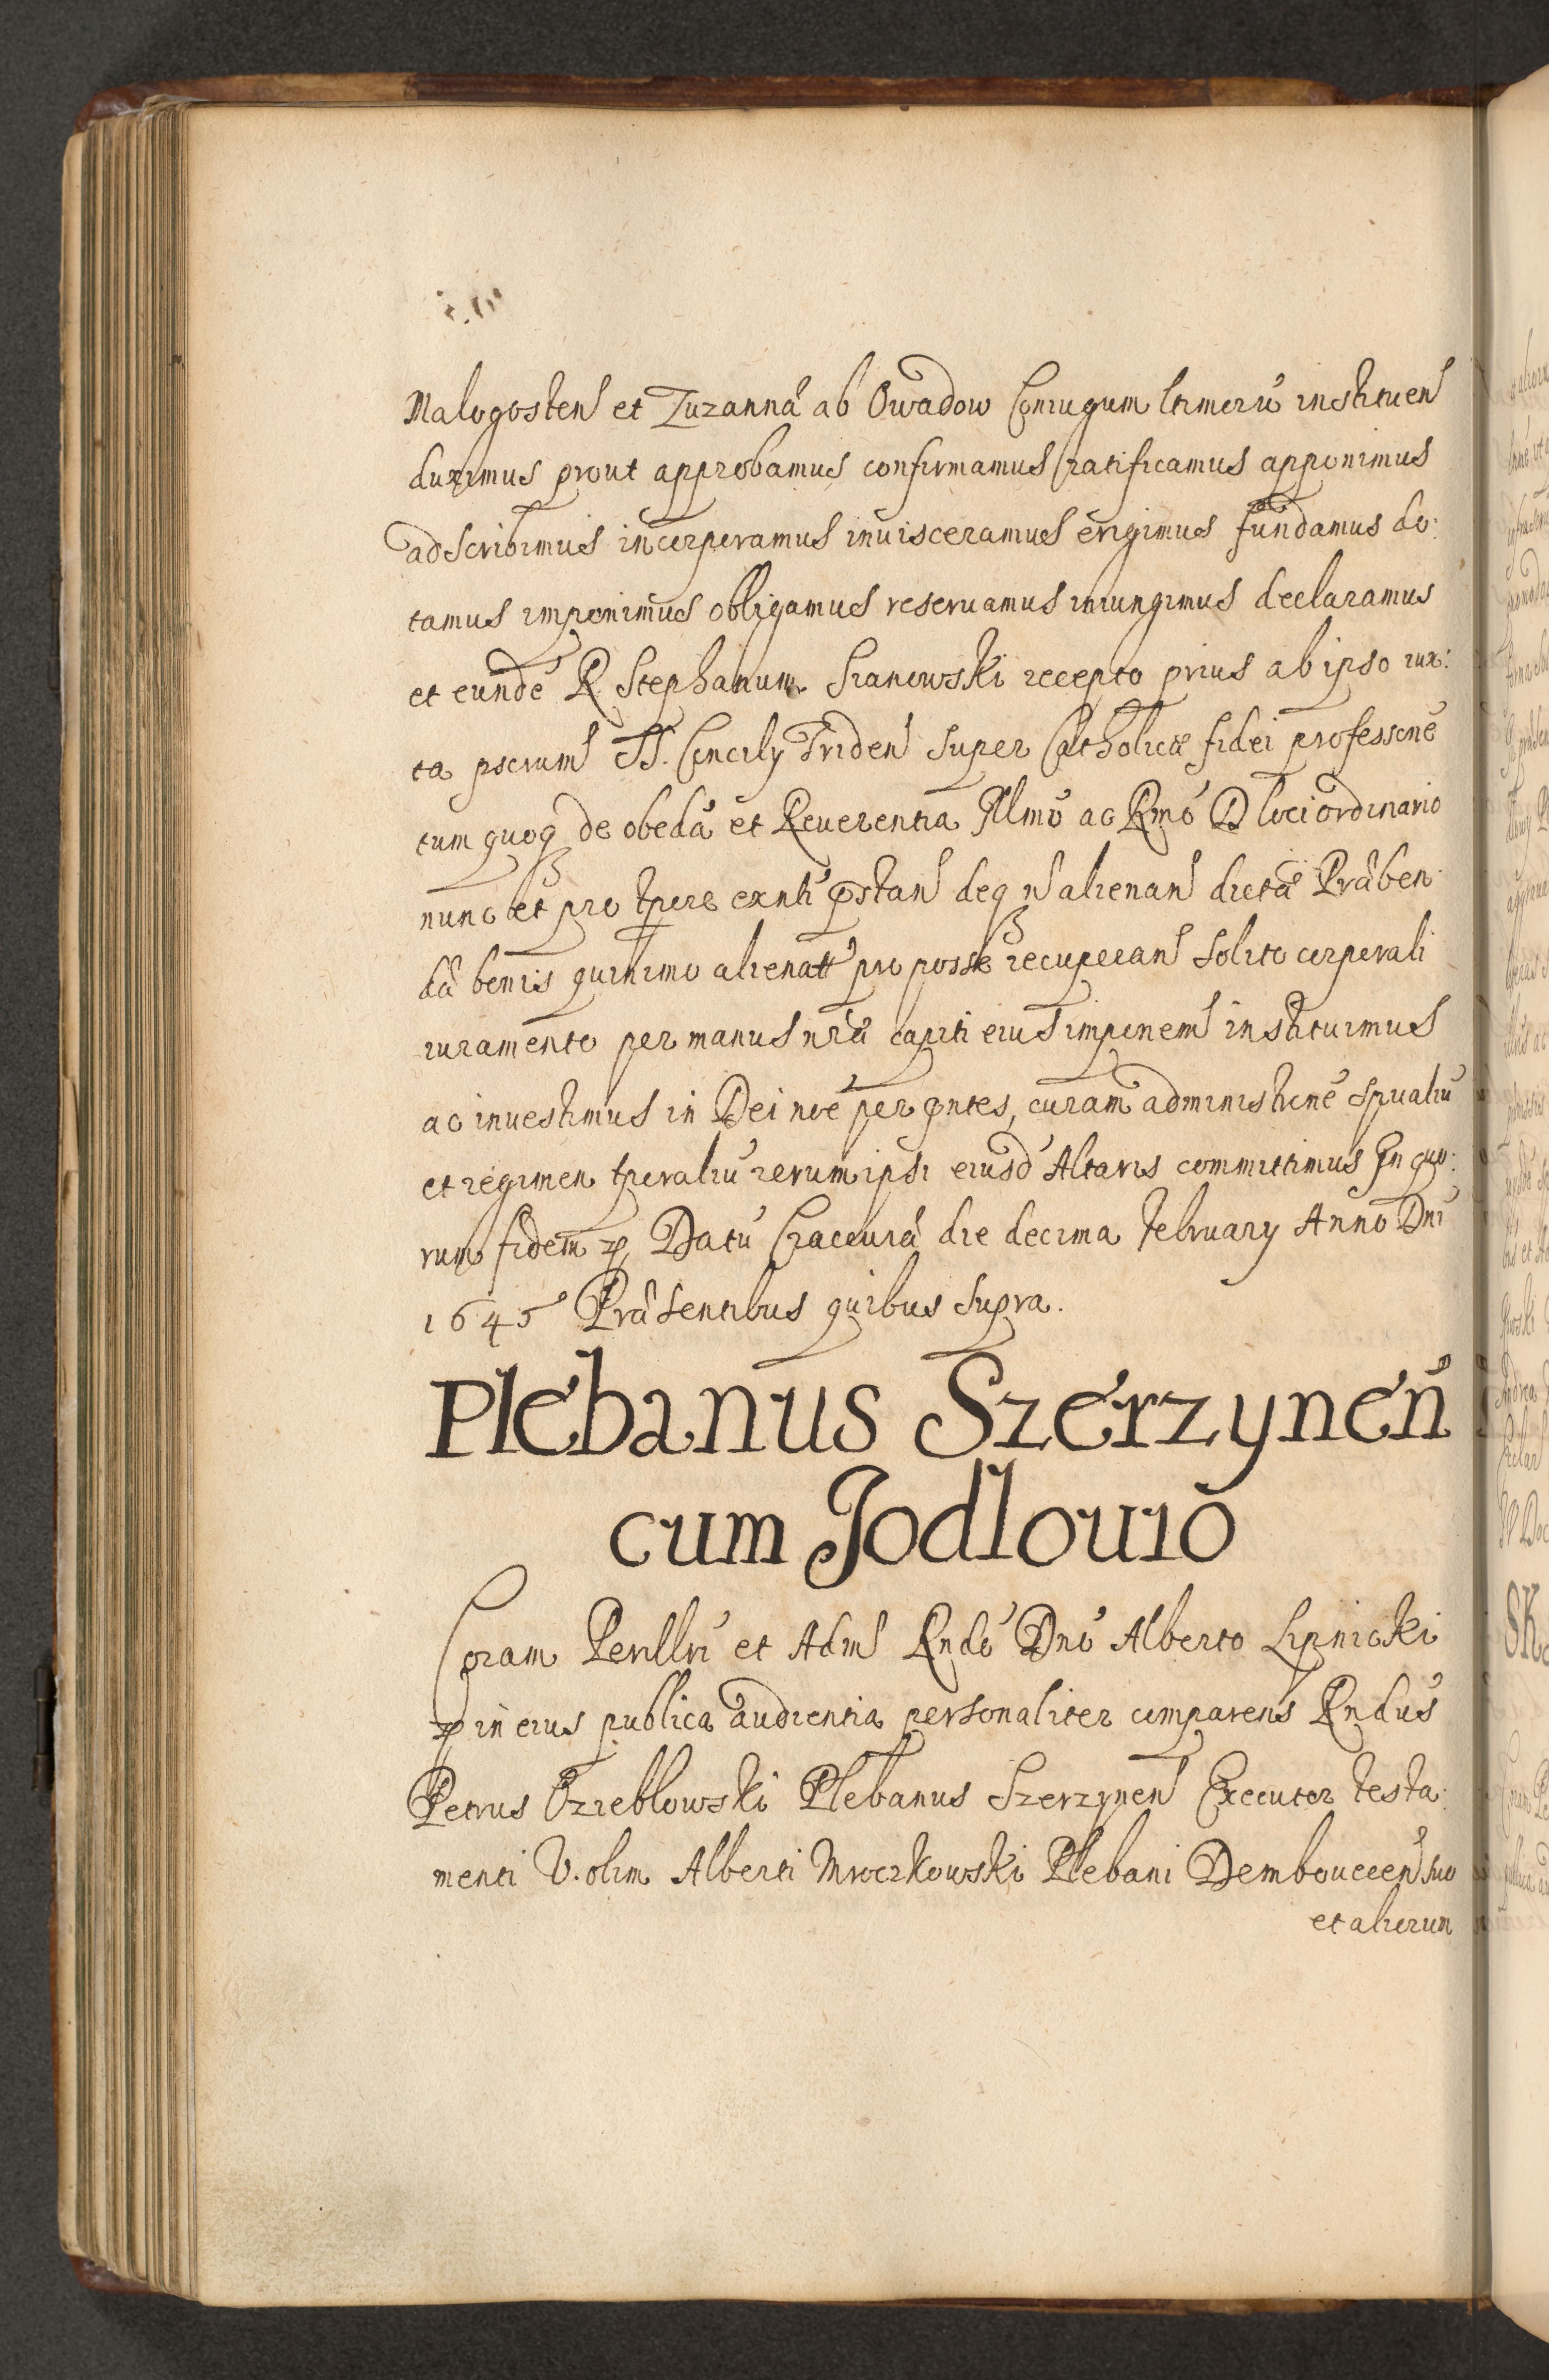 Malogosten et Zuzanná ab Owadow Coniugum ltimorú instituen
duximus prout approbamus confirmamus ratificamus apponimus
adscribimus incorporamus inuisceramus erigimus fundamus do:
tamus imponimus obligamus reseruamus iniungimus declaramus
et eundé R Stephanum Sranowski recepto prius ab ipso iux:
ta pscrum SS. Concily Triden super Catholicæ fidei professoné
tum quoq de obedá et Reuerentia Illmo ac Rmo D loci ordinario
nunc et pro tpore exnti pstan deq n alienan dictæ Præben:
dæ bonis quinimo alienatt pro posse recuperan solito corporali
iuramento per manus nræ capiti eius imponem instituimus
ac inuestimus in Dei noé per pntes, curam administroné spualiú
et regimen tporaliú rerum ipsi eiusd Altaris committimus In quo:
rum fidem p Datú Cracouiæ die decima February Anno Dni
1645 Præsentibus quibus supra.
Plebanus Szerzynen
cum Jodlouio
Coram Perllri et Adm Rndo Dno Alberto Lipnicki
p in eius publica audientia personaliter comparens Rndus
Petrus Ozieblowski Plebanus Szerzynen Executor testa:
menti V. olim Alberti Mroczkowski Plebani Dembouecen suo
et aliorum